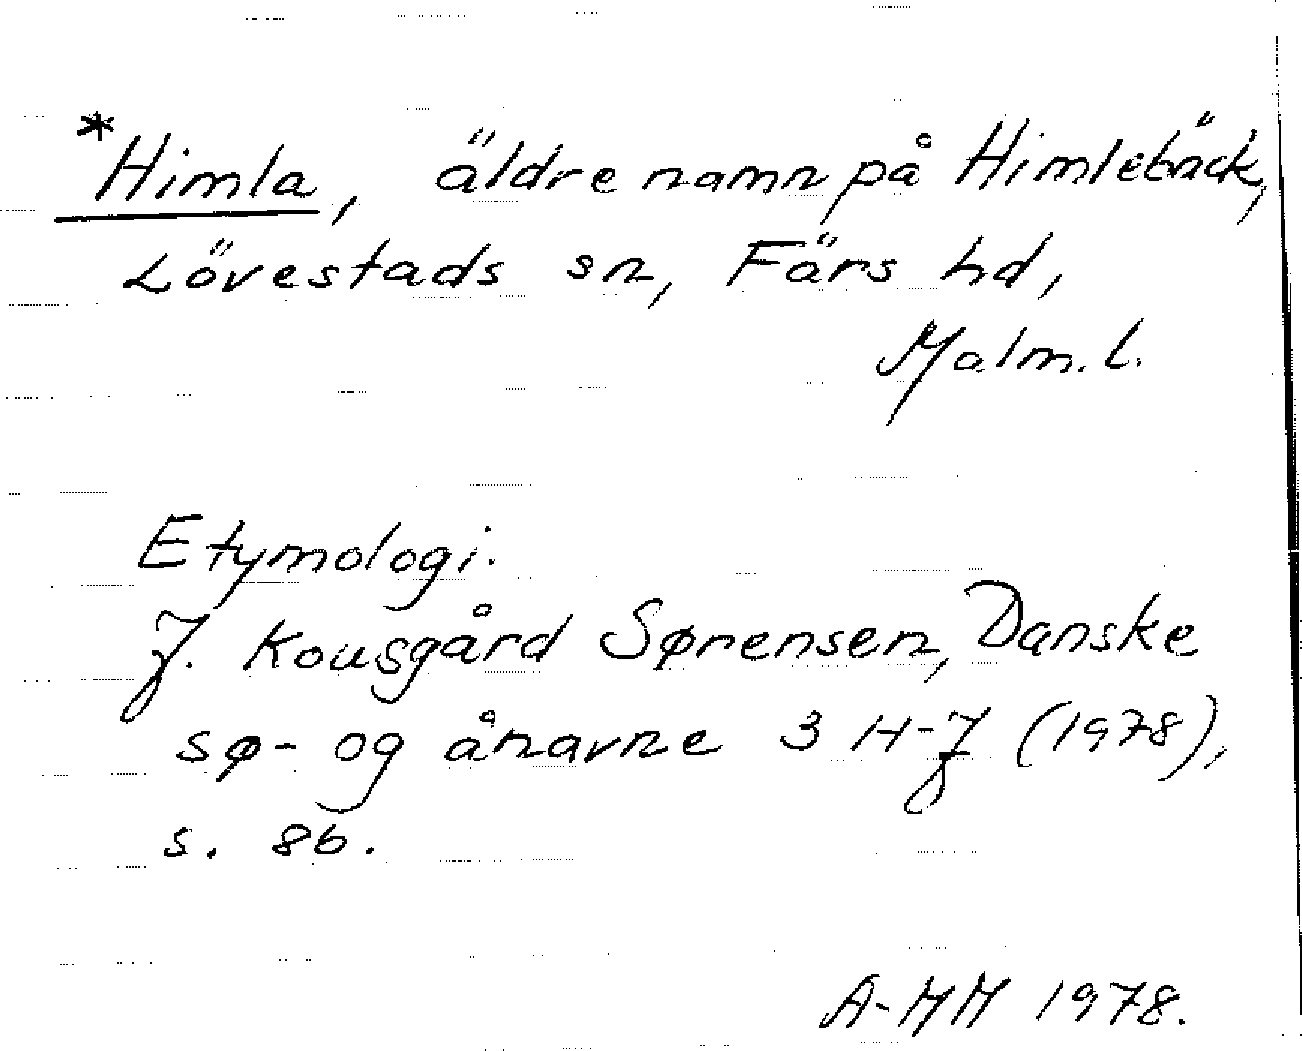 *Himla, äldre namn på Himlebäck,
Lövestads sn, Färs hd,
Malm. l.
Etymologi.
J. Kousgård Sørensen, Danske
sø- og ånavne 3 H-J (1978),
s. 86.
A-MM 1978.